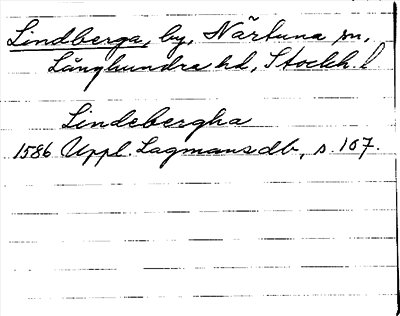 Lindberga, by, Närtuna sn,
Långhundra hd, Stockh. l
Lindebergha
1586 Uppl. Lagmansdb, s. 107.